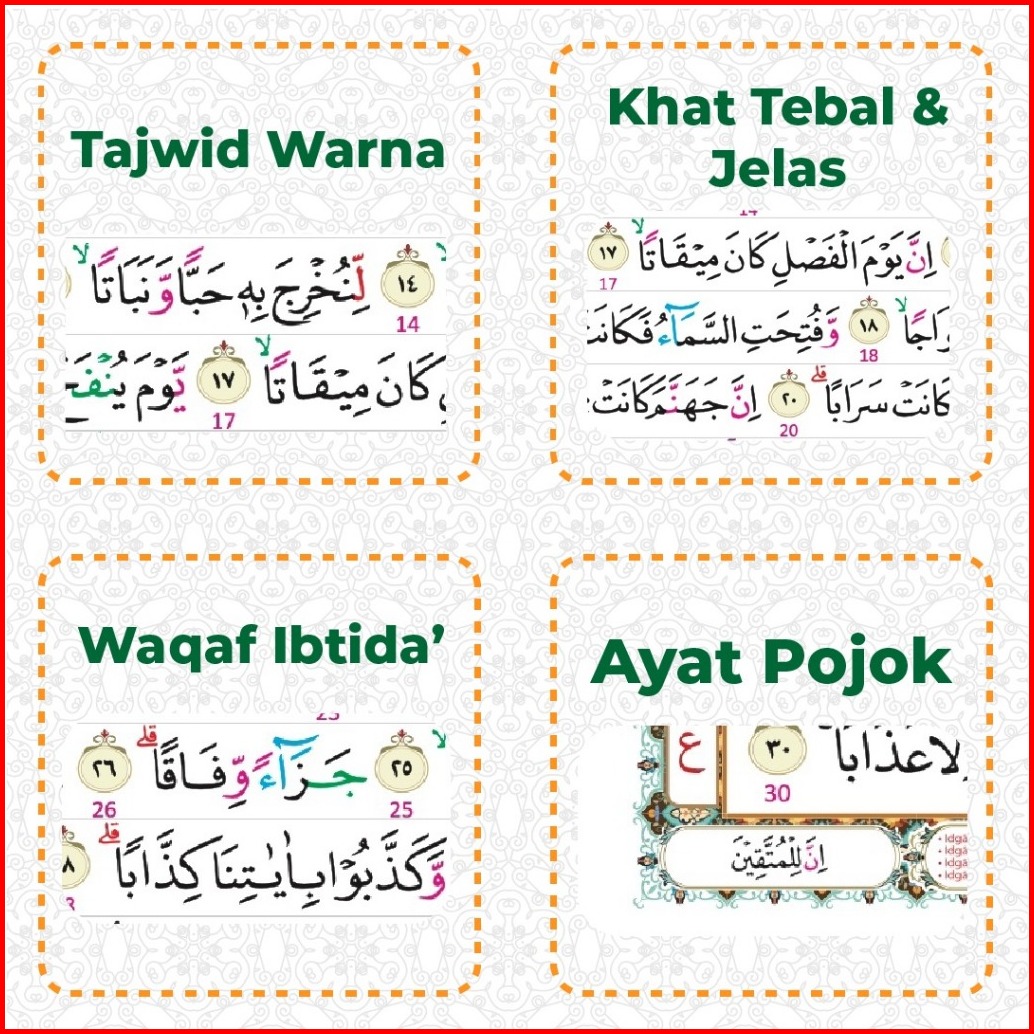 Tajwid Warna
١٤ لِّنُخْرِجَ بِهٖ حَبًّا وَّنَبَاتًا ۙ
14
كَانَ مِيْقَاتًا ۙ ١٧ يَّوْمَ يُنْفَخُ
17
Khat Tebal &
Jelas
اِنَّ يَوْمَ الْفَصْلِ كَانَ مِيْقَاتًا ۙ ١٧
17
١٨ وَّفُتِحَتِ السَّمَاۤءُ فَكَانَتْ
18
كَانَتْ سَرَابًا ۗ ٢٠ اِنَّ جَهَنَّمَ كَانَتْ
20
Waqaf Ibtida’
٢٥ جَزَاۤءً وِّفَاقًا ۗ ٢٦
25 26
وَّكَذَّبُوْا بِاٰيٰتِنَا كِذَّابًا ۗ
Ayat Pojok
عَذَابًا ٣٠
ع
30
اِنَّ لِلْمُتَّقِيْنَ
• Idgā
• Idgā
• Idgā
• Idgā